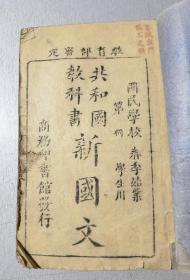 教育部審定
國民學校 春季始業
第 冊 學生用
共和國
教科書
新國文
商務印書館發行